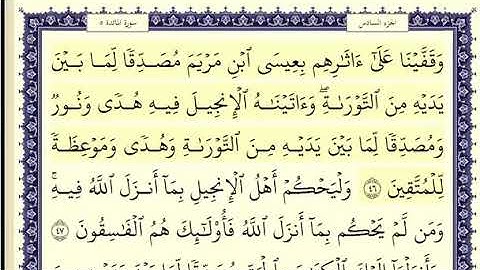 سورة المائدة ٥
الجزء السادس
وَقَفَّيْنَا عَلَىٰٓ ءَاثَٰرِهِم بِعِيسَى ٱبْنِ مَرْيَمَ مُصَدِّقًا لِّمَا بَيْنَ
يَدَيْهِ مِنَ ٱلتَّوْرَىٰةِ ۖ وَءَاتَيْنَٰهُ ٱلْإِنجِيلَ فِيهِ هُدًى وَنُورٌ
وَمُصَدِّقًا لِّمَا بَيْنَ يَدَيْهِ مِنَ ٱلتَّوْرَىٰةِ وَهُدًى وَمَوْعِظَةً
لِّلْمُتَّقِينَ ٤٦ وَلْيَحْكُمْ أَهْلُ ٱلْإِنجِيلِ بِمَآ أَنزَلَ ٱللَّهُ فِيهِ ۚ
وَمَن لَّمْ يَحْكُم بِمَآ أَنزَلَ ٱللَّهُ فَأُو۟لَٰٓئِكَ هُمُ ٱلْفَٰسِقُونَ ٤٧